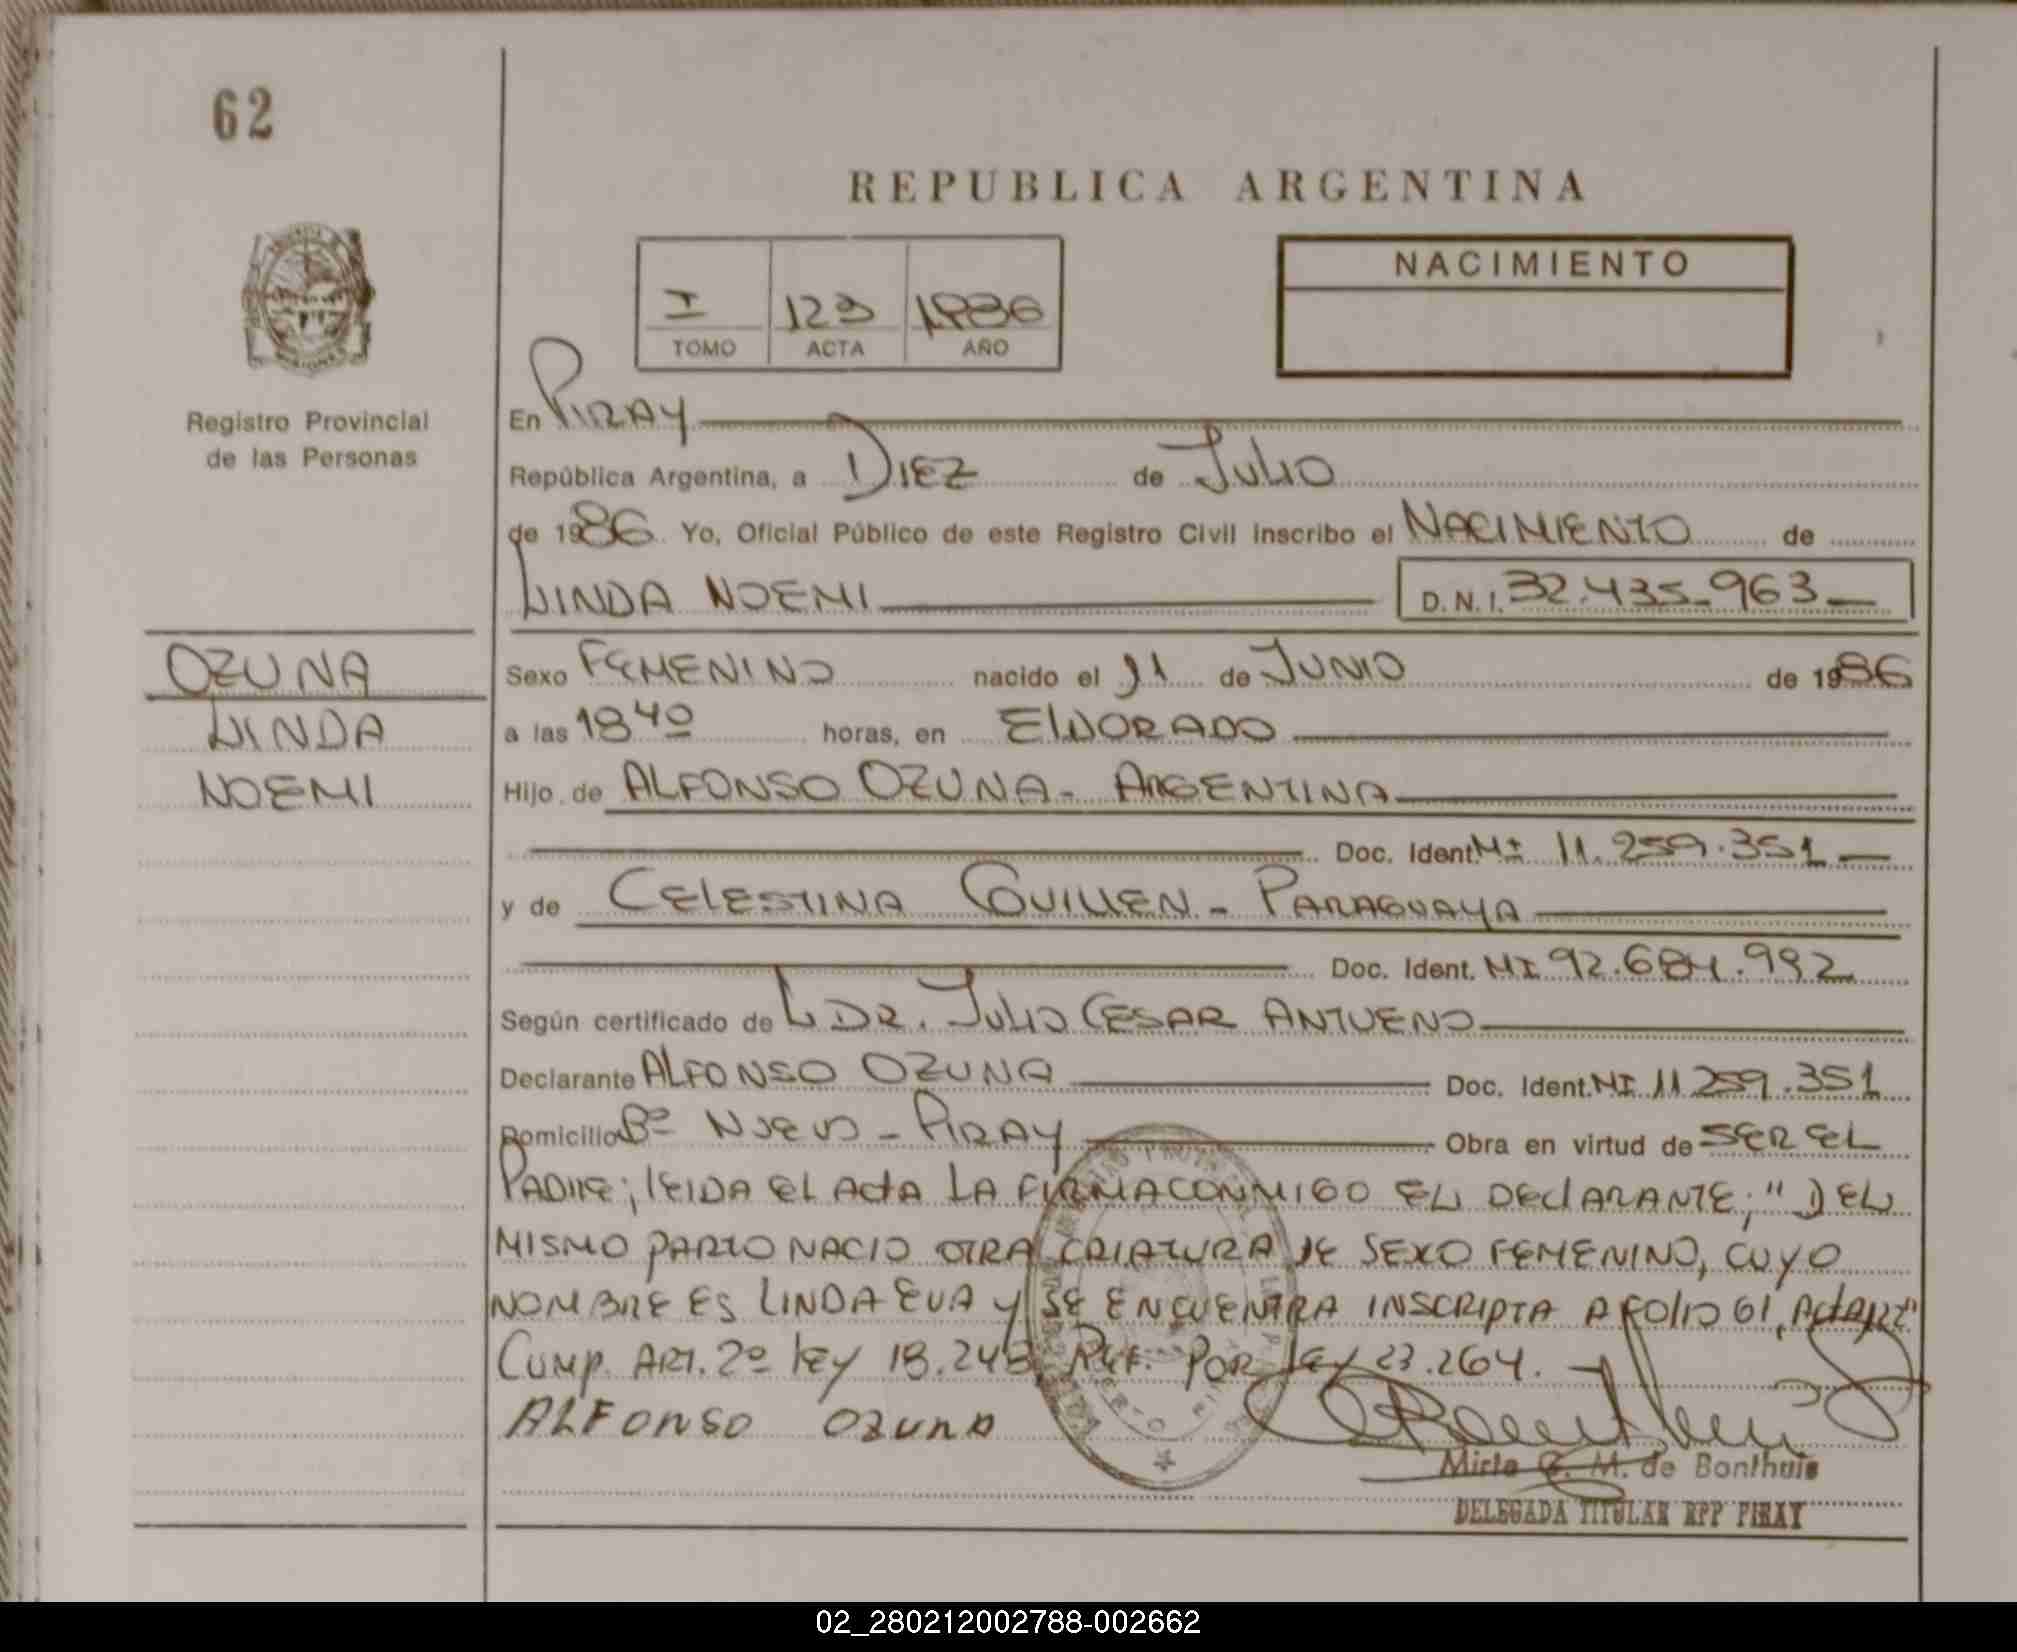 62
REPUBLICA ARGENTINA
NACIMIENTO
I 123 1986
TOMO ACTA AÑO
Registro Provincial
de las Personas
En PIRAY
República Argentina, a DIEZ de JULIO
de 1986 Yo, Oficial Público de este Registro Civil inscribo el NACIMIENTO de
LINDA NOEMI D.N.I. 32.435.963
OZUNA
LINDA
NOEMI
Sexo FEMENINO nacido el 11 de JUNIO de 1986
a las 18 40 horas, en ELDORADO
Hijo de ALFONSO OZUNA - ARGENTINA
Doc. Ident. MI 11.259.351
y de CELESTINA GUILLEN - PARAGUAYA
Doc. Ident. MI 92.684.992
Según certificado de L DR. JULIO CESAR ANTUENO
Declarante ALFONSO OZUNA Doc. Ident. MI 11.259.351
Domicilio Bº NUEVO - PIRAY Obra en virtud de SER EL
PADRE; LEIDA EL ACTA LA FIRMA CONMIGO EL DECLARANTE; " DEL
MISMO PARTO NACIO OTRA CRIATURA DE SEXO FEMENINO, CUYO
NOMBRE ES LINDA EVA Y SE ENCUENTRA INSCRIPTA A FOLIO 61, ACTA
CUMP. ART. 2º LEY 18.248, POR LEY 23.264.
ALFONSO OZUNA
Mirta G. M. de Bonthuis
DELEGADA TITULAR RPP PIRAY
02_280212002788-002662